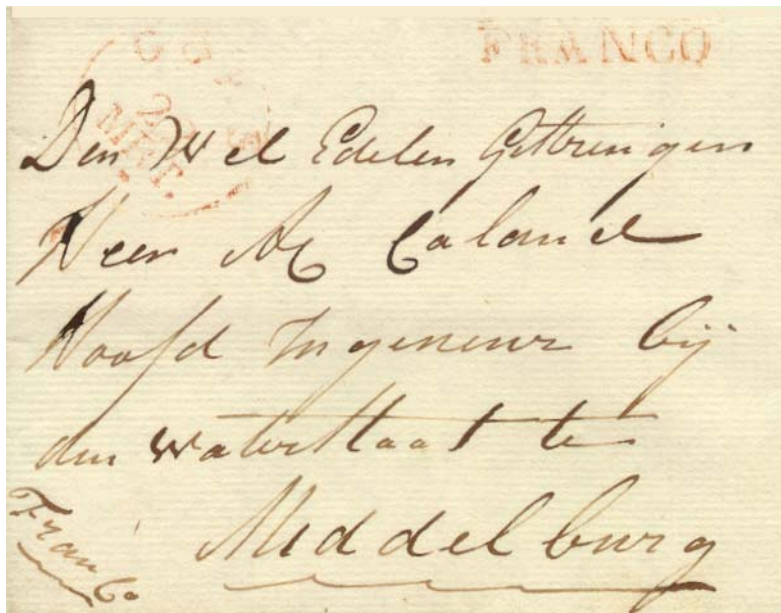 FRANCO
MEI.
Den Wel Edelen Gestrengen
Heer AC Caland
Hoofd Ingenieur bij
den Waterstaat te
Middelburg
Franco